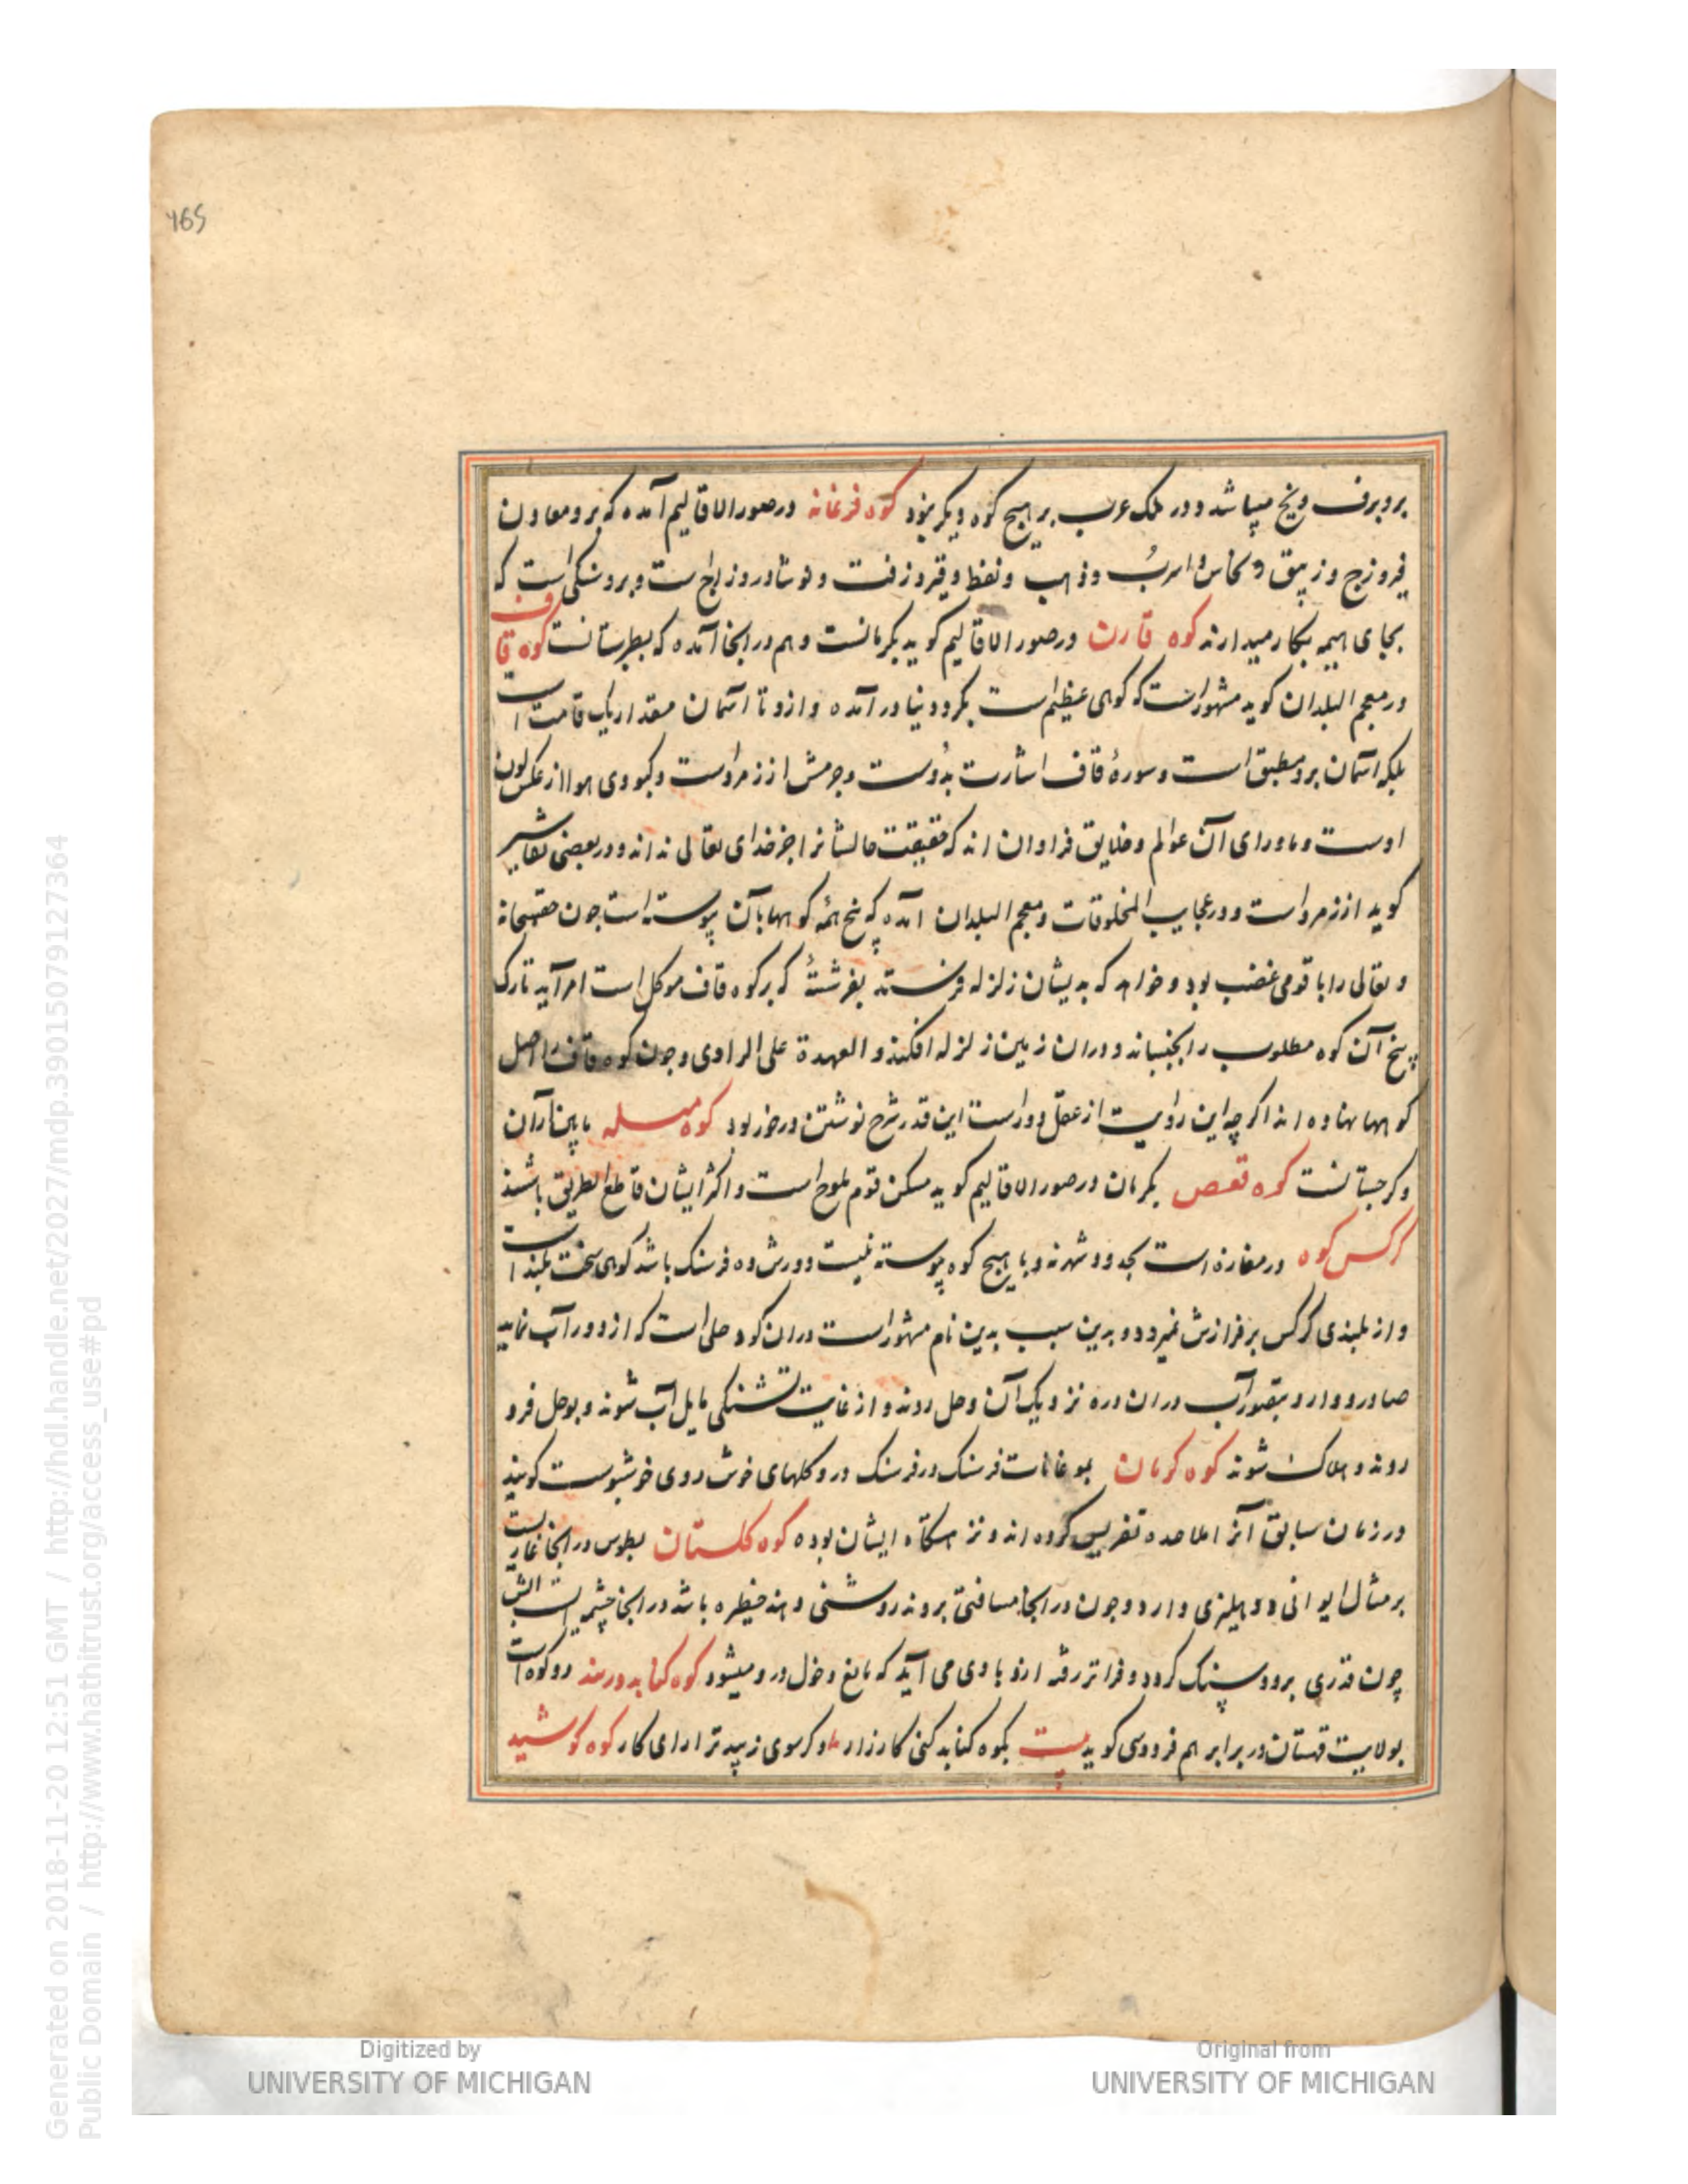 465
برو برف و یخ میباشد و در ملک عرب بر هیچ کوه دیگر نبود کوه فرغانه در صور الاقالیم آمده که برو معادن
فیروزج و زیبق و نحاس و اسرب و ذهب و نفط و قیر و زفت و نوشادر و زاج است و برو سنکی است که
بجای هیمه بکار میدارند کوه قارن در صور الاقالیم کوید بکرمانست و هم در انجا آمده که بطبرستانست کوه قاف
در معجم البلدان کوید مشهور است که کوهی عظیم است بکرد دنیا در آمده و ازو تا آسمان مقدار یک قامت است
بلکه آسمان برو مطبق است و سورهٔ قاف اشارت بدوست و جرمش از زمرد است و کبودی هوا از عکس لون
اوست و ماورای آن عوالم و خلایق فراوان اند که حقیقت حالشانرا جز خدای تعالی نداند و در بعضی تفاسیر
کوید از زمرد است و در عجایب المخلوقات و معجم البلدان آمده که بیخ همه کوهها بآن پیوسته است جون حق سبحانه
و تعالی را با قومی غضب بود و خواهد که بدیشان زلزله فرستد بفرشتهٔ که بر کوه قاف موکل است امر آید تا رک
بیخ آن کوه مطلوب را بجنباند و دران زمین زلزله افکند و العهدة علی الراوی و جون کوه قاف را اصل
کوهها نهاده اند اکر چه این روایت از عقل دور است این قدر شرح نوشتن در خور بود کوه مسله ما بین اران
و کرجستانست کوه قفص بکرمان در صور الاقالیم کوید مسکن قوم بلوج است و اکثر ایشان قاطع الطریق باشند
کرکس کوه در مفازه است بحدود شهر نه و با هیچ کوه پیوسته نیست و دورش ده فرسنک باشد کوهی سخت بلند است
و از بلندی کرکس بر فرازش نمیرود و بدین سبب بدین نام مشهور است دران کوه وحلی است که از دور آب نماید
صادر و وارد بتصور آب دران دره نزدیک آن وحل روند و از غایت تشنکی مایل آب شوند و بوحل فرو
روند و هلاک شوند کوه کرمان فرسنک در فرسنک درو کلهای خوش روی خوشبوست کویند
در زمان سابق آنرا ملاحده کرده اند و نزهتکاه ایشان بوده کوه کلستان بطوس در انجا غاریست
بر مثال ایوانی و دهلیزی دارد و جون در انجا مسافتی بروند روشنی و هند حظیره باشد در انجا چشمه است آبش
چون قدری برود سنک کردد و فراتر رفته ازو بادی می آید که مانع دخول درو میشود کوه کنابد و رسد دو کوه است
بولایت قهستان در برابر هم فردوسی کوید بیت بکوه کنابد کنی کارزار و کر سوی زیبد تر ارای کار کوه کوشید
Generated on 2018-11-20 12:51 GMT / http://hdl.handle.net/2027/mdp.39015079127364
Public Domain / http://www.hathitrust.org/access_use#pd
Digitized by
UNIVERSITY OF MICHIGAN
Original from
UNIVERSITY OF MICHIGAN